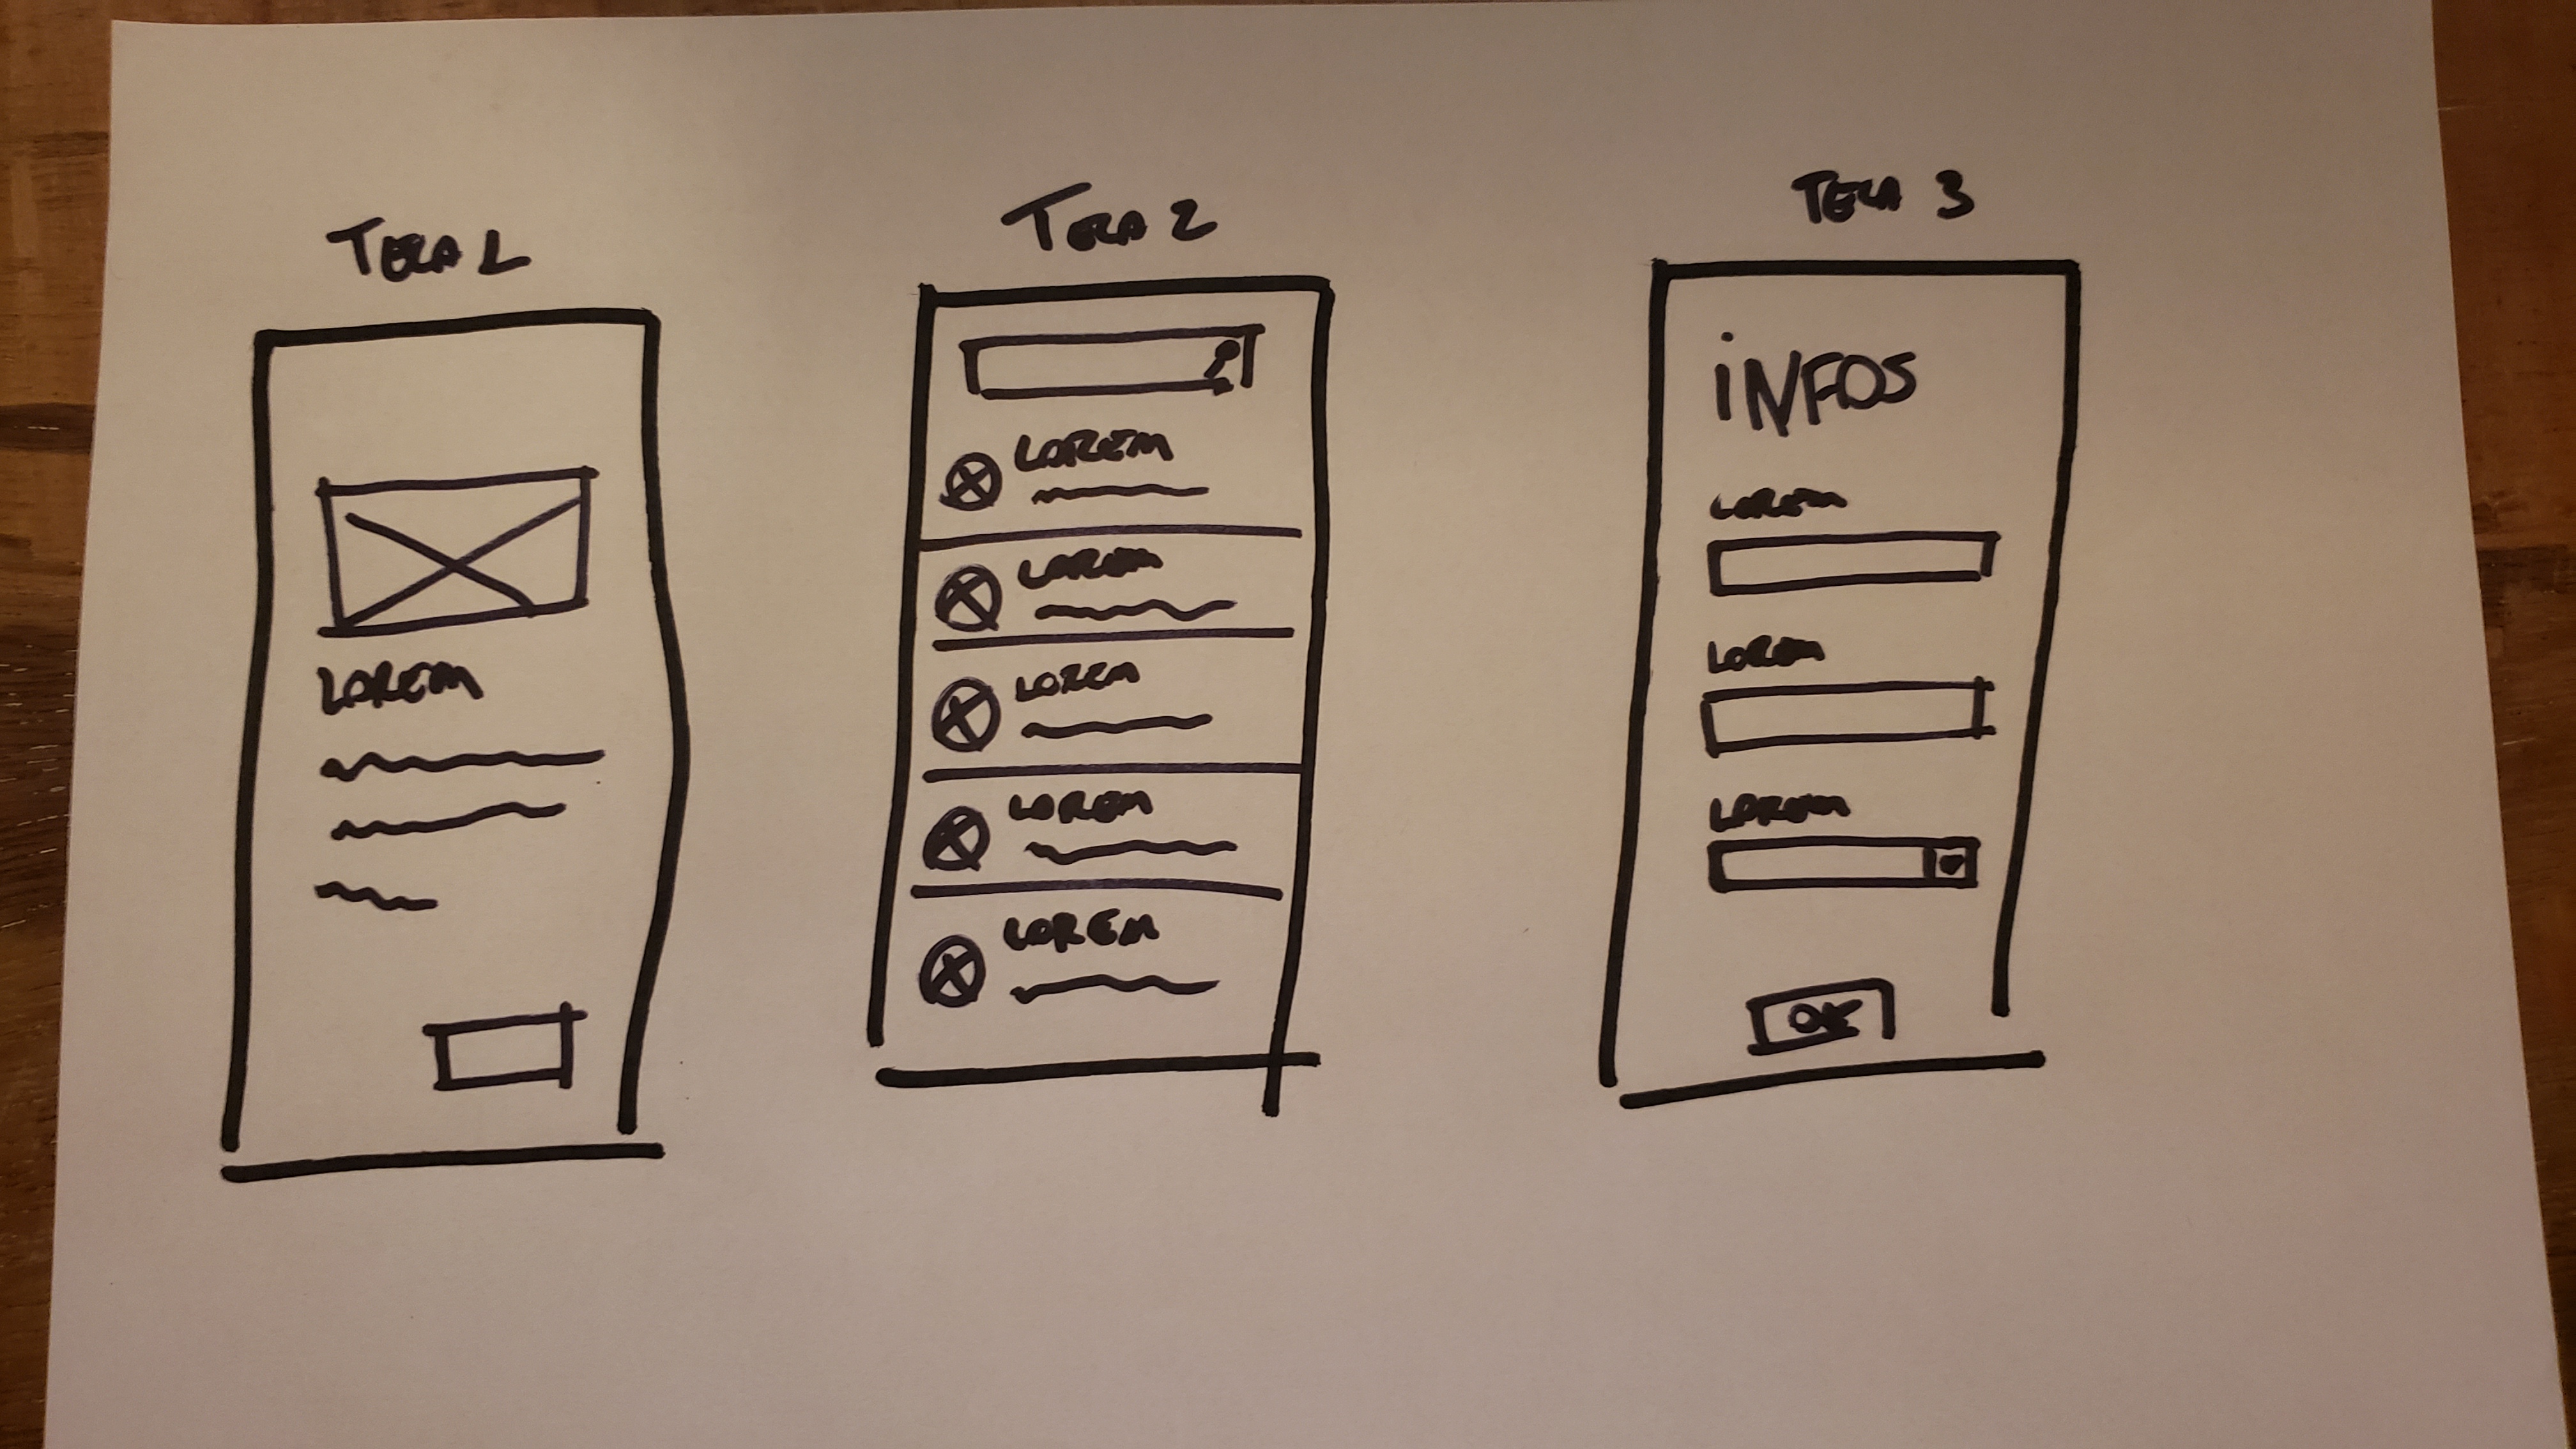 TELA 1
LOREM
TELA 2
LOREM
LOREM
LOREM
LOREM
LOREM
TELA 3
iNFOS
LOREM
LOREM
LOREM
OK